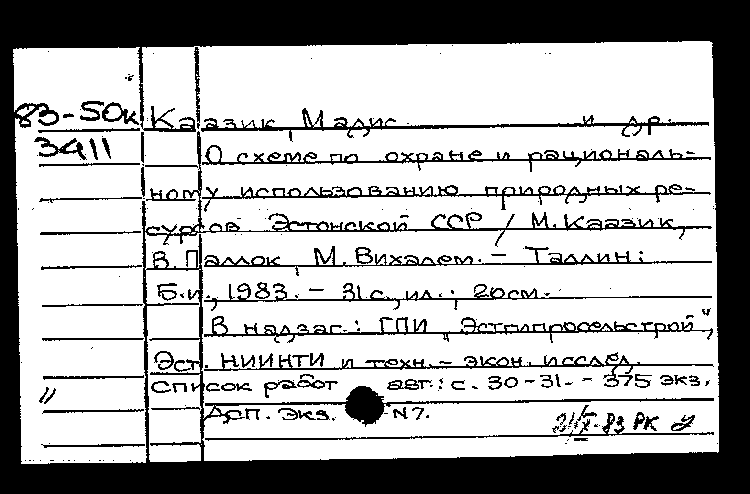 83-50к Каазик, Мадис и др.
3411
О схеме по охране и рациональ-
ному использованию природных ре-
сурсов Эстонской ССР / М. Каазик,
В. Паллок, М. Вихалем. - Таллин:
Б.и., 1983. - 31 с., ил.; 20 см.
В надзаг.: ГПИ "Эстгипросельстрой",
Эст. НИИНТИ и техн.-экон. исслед.
" Список работ авт.: с. 30-31. - 375 экз.
Доп. экз. N7.
21/X-83 РК